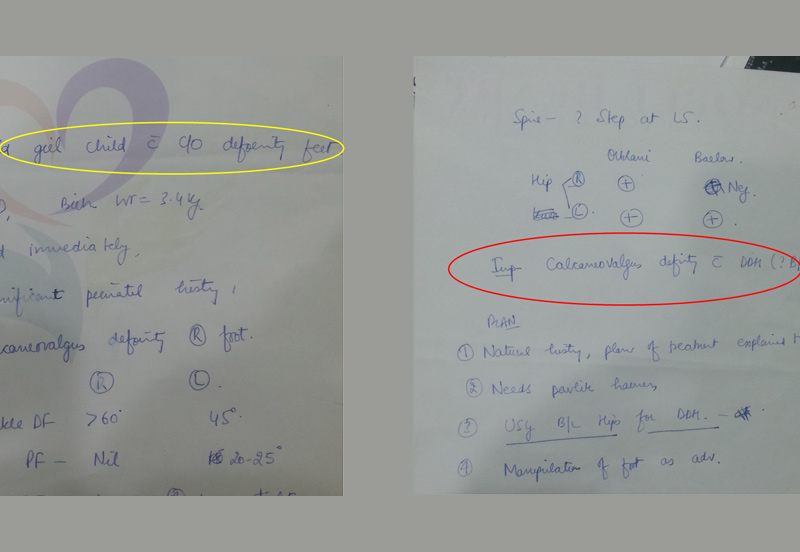 girl child c̄ c/o deformity feet
Birth WT = 3.4 kg
immediately,
perinatal history,
deformity Ⓡ foot.
Ⓡ Ⓛ
DF >60° 45°.
PF – Nil 20-25°
Spine – ? Step at LS.
Othlani Barlow.
Hip Ⓡ ⊕ Neg.
Ⓛ. ⊕ ⊕.
Imp Calcaneovalgus defirity c̄ DDH (?
PLAN
① Natural history, plan of treatment explained
② Needs pavlik harness
③ USG B/L Hips for DDH. –
④ Manipulation of foot as adv.